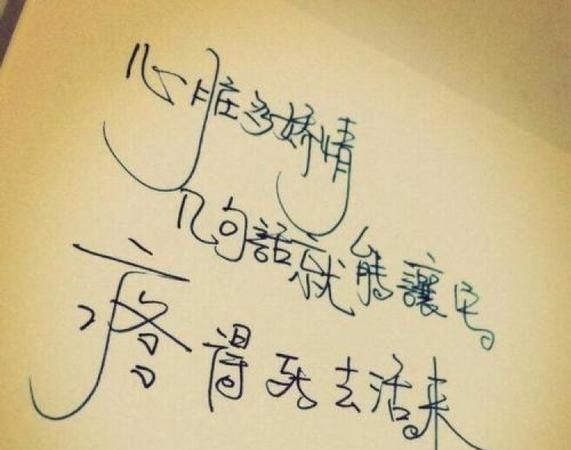 心脏多矫情
几句話就能讓它
疼得死去活来